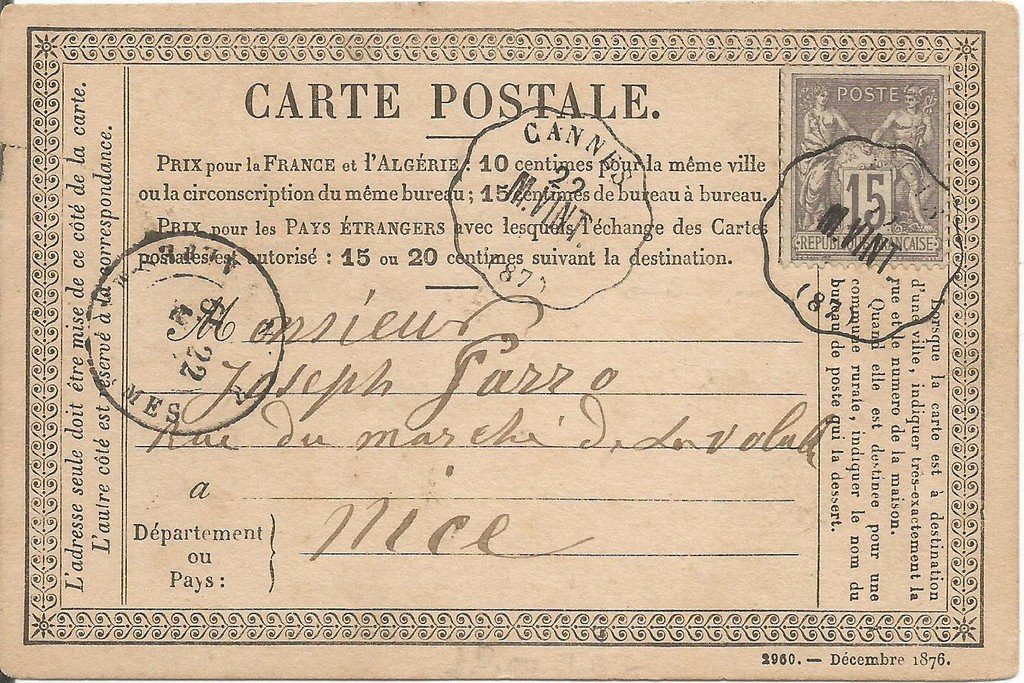 CARTE POSTALE.
PRIX pour la FRANCE et l'ALGÉRIE : 10 centimes pour la même ville
ou la circonscription du même bureau ; 15 centimes de bureau à bureau.
PRIX pour les PAYS ÉTRANGERS avec lesquels l'échange des Cartes
postales est autorisé : 15 ou 20 centimes suivant la destination.
Monsieur
Joseph
Rue du marché de la
a
Nice
Département
ou
Pays :
L'adresse seule doit être mise de ce côté de la carte.
L'autre côté est réservé à la correspondance.
POSTE
15
REPUBLIQUE FRANÇAISE
CANNES
22
M.VINT.
(87)
M.VINT.
(87
22
MES
Lorsque la carte est à destination
d'une ville, indiquer très-exactement la
rue et le numero de la maison.
Quand elle est destinée pour une
commune rurale, indiquer le nom du
bureau de poste qui la dessert.
2960. — Décembre 1876.